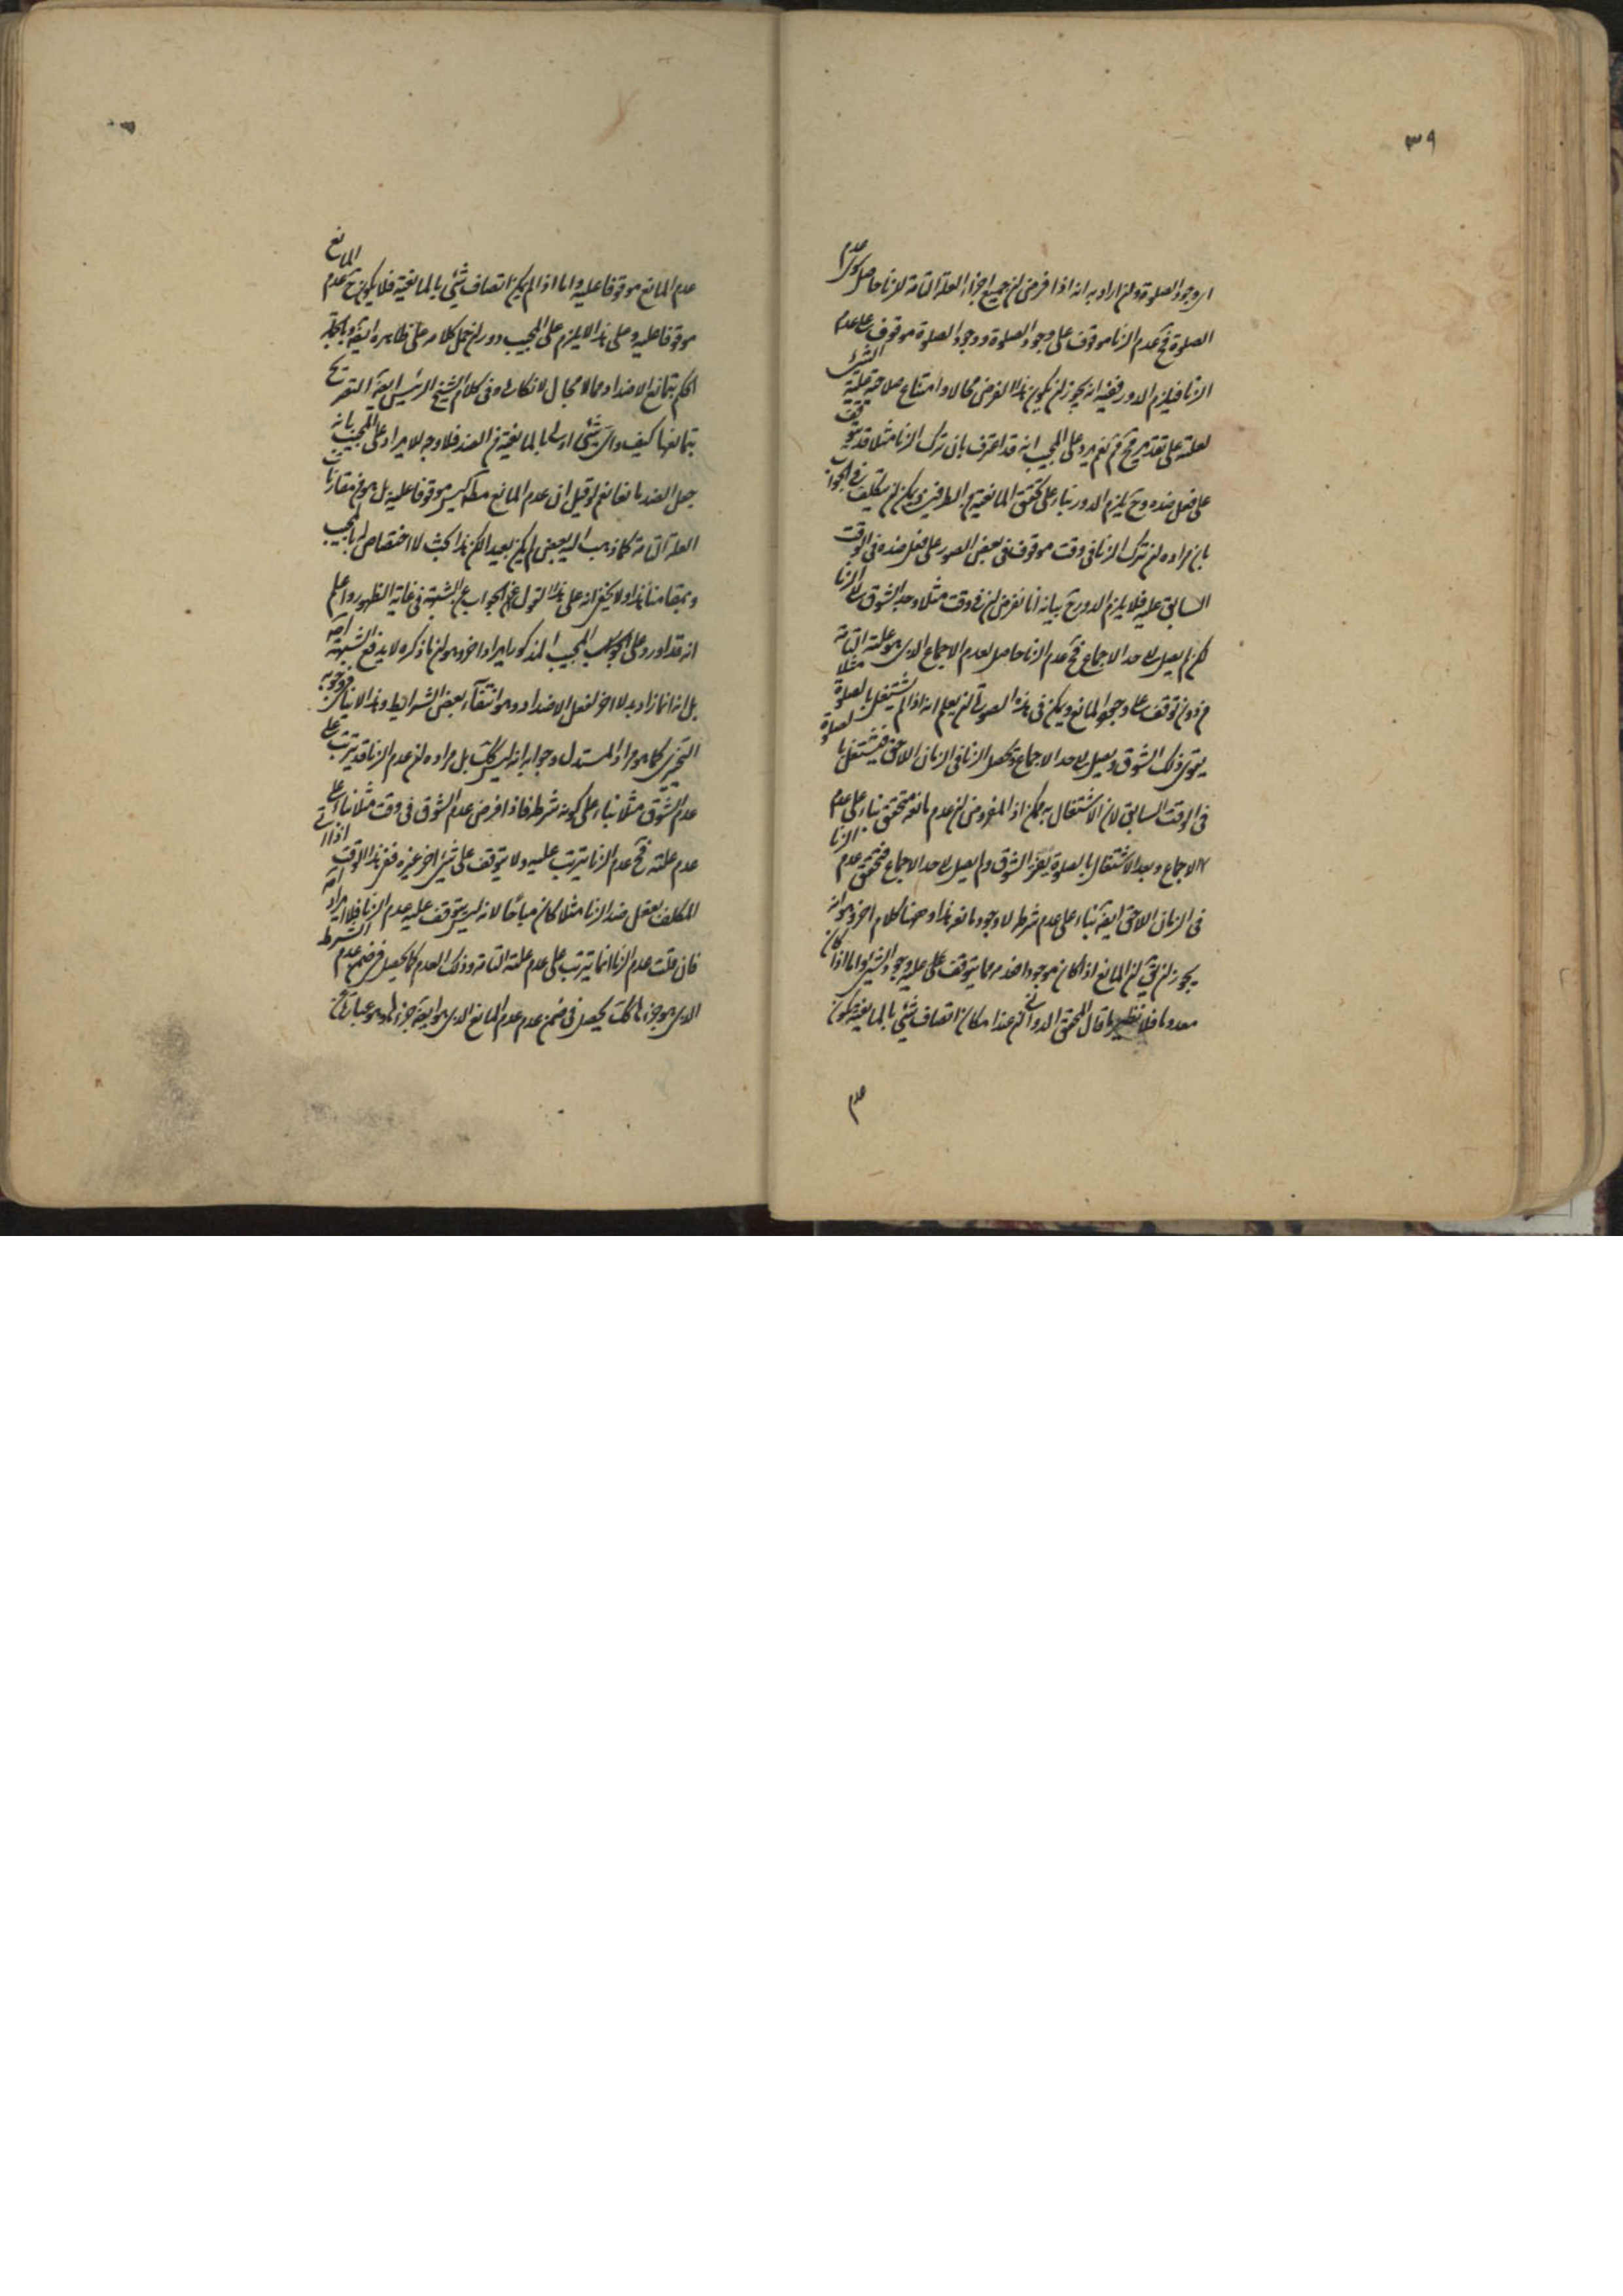 ٣٩
ای وجود الصلوة وان اراد به انه اذا فرض ان جمیع اجزاء العلة التامة للزنا حاصل سوی عدم
الصلوة فح عدم الزنا موقوف علی وجود الصلوة ووجود الصلوة موقوف علی عدم
الزنا فیلزم الدور ففیه انه یجوز ان یکون هذا الفرض محالا وامتناع صلاحیة علیة الشیء
لعلته علی تقدیر مح ثم نعم یرد علی المجیب انه قد اعترف بان ترک الزنا مثلا قد یتوقف
علی فعل ضده وح یلزم الدور بناء علی تحقق المانعیة من الطرفین ویمکن ان یتکلف فی الجواب
بان مراده ان ترک الزنا فی وقت موقوف فی بعض الصور علی فعل ضده فی الوقت
السابق علیه فلا یلزم الدور ح بیانه انا نفرض ان فی وقت مثلا وجد الشوق الی الزنا
لکن لم یصل الی حد الاجماع فح عدم الزنا حاصل لعدم الاجماع الذی هو علته التامة
من دون توقف علی وجود المانع ویمکن فی هذه الصورة ان یعلم انه اذا لم یشتغل بالصلوة مثلا
یقوی ذلک الشوق ویصل الی حد الاجماع ویحصل الزنا فی الزمان اللاحق فیشتغل بالصلوة
فی الوقت السابق لان الاشتغال به ممکن اذ المفروض ان عدم مانعه متحقق بناء علی عدم
الاجماع وبعد الاشتغال بالصلوة یفتر الشوق ولم یصل الی حد الاجماع فتحقق عدم الزنا
فی الزمان اللاحق ایضا بناء علی عدم شرطه لا وجود مانعه هذا وههنا کلام اخر وهو انه
یجوز ان یق ان المانع اذا کان موجودا فعدمه مما یتوقف علیه وجود الشیء واما اذا کان
معدوما فلا نظیر ما قال المحقق الدوانی ان عند امکان اتصاف شیء بالمانعیة یکون
عدم
عدم المانع موقوفا علیه واما اذا لم یکن اتصاف شیء بالمانعیة فلا یکون ح عدم المانع
موقوفا علیه وعلی هذا لا یلزم علی المجیب دور ان حمل کلامه علی ظاهره ایضا وبالجملة
الحکم بتمانع الاضداد مما لا مجال لانکاره وفی کلام الشیخ الرئیس ایضا التصریح
بتمانعها کیف وای شیء اولی بالمانعیة من الضد فلا وجه للایراد علی المجیب بانه
جعل الضد مانعا نعم لو قیل ان عدم المانع مطلقا لیس موقوفا علیه بل هو من مقارنات
العلة التامة کما ذهب الیه بعض لم یکن بعیدا لکن هذا بحث لا اختصاص له بالمجیب
وبمقامنا هذا ولا یخفی انه علی هذا القول ایضا الجواب عن الشبهة فی غایة الظهور واعلم
انه قد اورد علی جواب المجیب المذکور ایراد اخر وهو ان ما ذکره لا یدفع الشبهة اصلا
بل انه انما زاد بدلا اخر لفعل الاضداد وهو انتفاء بعض الشرائط وهذا لا ینافی وجوبه
التخییری کما هو مراد المستدل وجوابه انه لیس کذلک بل مراده ان عدم الزنا قد یترتب علی
عدم الشوق مثلا بناء علی کونه شرطه فاذا فرض عدم الشوق فی وقت مثلا بناء علی
عدم علته فح عدم الزنا یترتب علیه ولا یتوقف علی شیء اخر غیره ففی هذا الوقت اذا اتی
المکلف بفعل ضد الزنا مثلا کان مباحا لانه لیس یتوقف علیه عدم الزنا فلا ایراد اصلا
فان قلت عدم الزنا انما یترتب علی عدم علته التامة وذلک العدم کما یحصل فی ضمن عدم الشرط
الذی هو جزءها کذلک یحصل فی ضمن عدم عدم المانع الذی هو ایضا جزءها وهو عبارة عن